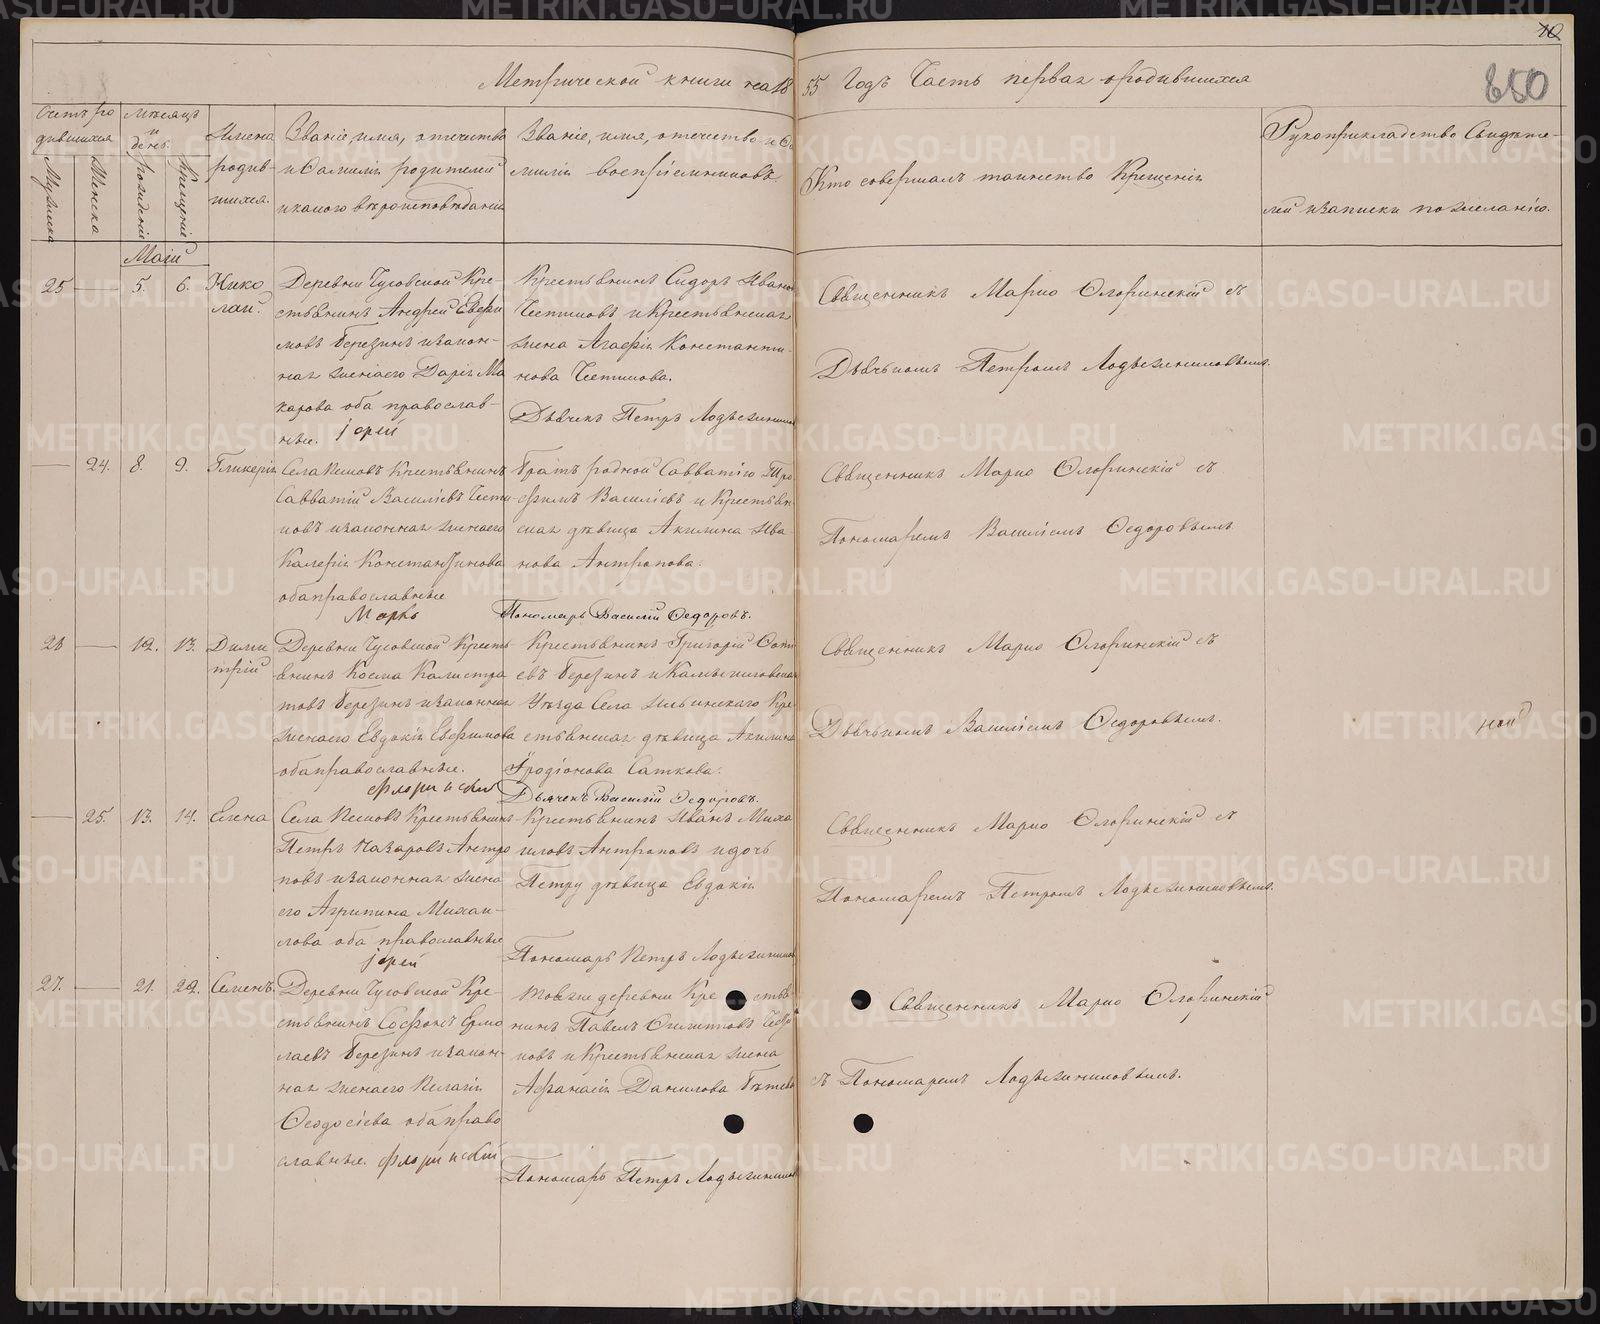 Метрической книги на 18 55 Годъ Часть первая о родившихся
10
850
Счетъ ро
дившихся
Мужеска
Женска
мѣсяцъ
и
день.
рожденіе
крещеніе
Имена
родив-
шихся.
Званіе, имя, отчество
и Фамилія родителей
и какого вѣроисповѣданія
Званіе, имя, отчество и Фа
милія воспріемниковъ.
Кто совершалъ таинство Крещенія
Рукоприкладство Свидѣте-
лей и записки по желанію.
Маій
25 5. 6. Нико
лай.
Деревни Чусовской Кре-
стьянинъ Андрей Евфи
мовъ Березинъ и закон-
ная жена его Дарія Ма
карова оба православ-
ные. іерей
Крестьянинъ Сидоръ Ивано
и Крестьянская
жена Агафія Константи-
нова
Дьячекъ Петръ
Священникъ Марко Флоринскій съ
Дьячкомъ Петромъ
24. 8. 9. Гликерія
Села Крестьянинъ
Савватій Васильевъ
и законная жена его
Калерія Константинова
оба православные
Марко
Братъ родной Савватію Тро
фимъ Васильевъ и Крестьян
ская дѣвица Акилина Ива
нова Антропова.
Пономарь Василій Федоровъ.
Священникъ Марко Флоринскій съ
Пономаремъ Василіемъ Федоровымъ
26 12. 13. Дими
трій
Деревни Чусовской Кресть
янинъ Косма Калистра
товъ Березинъ и законная
жена его Евдокія Евфимова
оба православные.
Флоринский
Крестьянинъ Григорій
евъ Березинъ и
Уѣзда Села Ильинскаго Кре
стьянская дѣвица Акилина
Иродіонова Саткова.
Дьячекъ Василій Федоровъ.
Священникъ Марко Флоринскій съ
Дьячкомъ Василіемъ Федоровымъ.
25. 13. 14. Елена
Села Крестьянинъ
Петръ Назаровъ Антро
повъ и законная жена
его Агрипина Михаи-
лова оба православные
іерей
Крестьянинъ Иванъ Миха
иловъ Антроповъ и дочь
Петру дѣвица Евдокія
Пономарь Петръ
Священникъ Марко Флоринскій съ
Пономаремъ Петромъ
27. 21. 22. Семенъ.
Деревни Чусовской Кре-
стьянинъ Софонъ Ермо
лаевъ Березинъ и закон-
ная жена его Пелагія
Феодосіева оба право
славные. Флоринский
Тоя же деревни Кре стья-
нинъ Павелъ Филиповъ
и Крестьянская жена
Афанасія Данилова
Пономарь Петръ
Священникъ Марко Флоринскій
съ Пономаремъ
METRIKI.GASO-URAL.RU